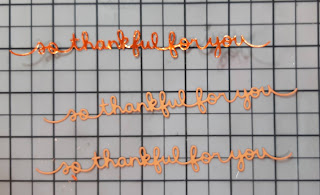 so thankful for you
so thankful for you
so thankful for you